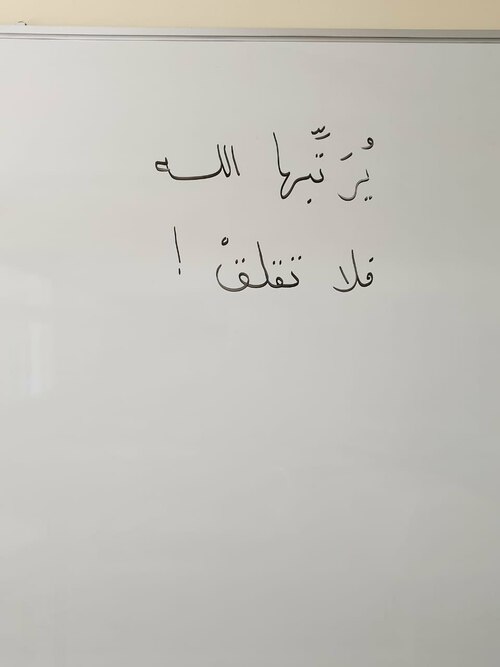 يُرَتِّبها الله
فلا تقلقْ !